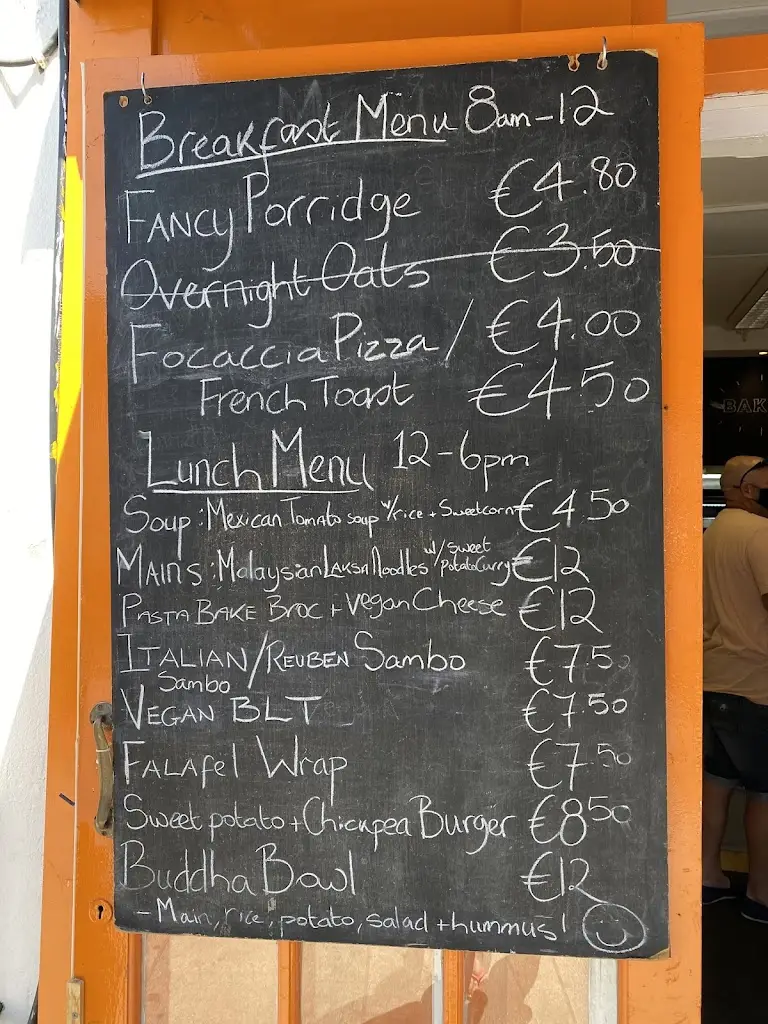 Breakfast Menu 8am-12
FANCY Porridge €4.80
Overnight Oats €3.50
Focaccia Pizza / €4.00
French Toast €4.50
Lunch Menu 12-6pm
Soup: Mexican Tomato soup w/rice + Sweetcorn €4.50
MAINS: Malaysian LAKSA Noodles w/ sweet potato Curry €12
PASTA BAKE BROC + Vegan Cheese €12
ITALIAN/REUBEN Sambo €7.50
Sambo
VEGAN BLT €7.50
FALAFel Wrap €7.50
Sweet potato + Chickpea Burger €8.50
Buddha Bowl €12
- Main, rice, potato, salad + hummus!
BAK